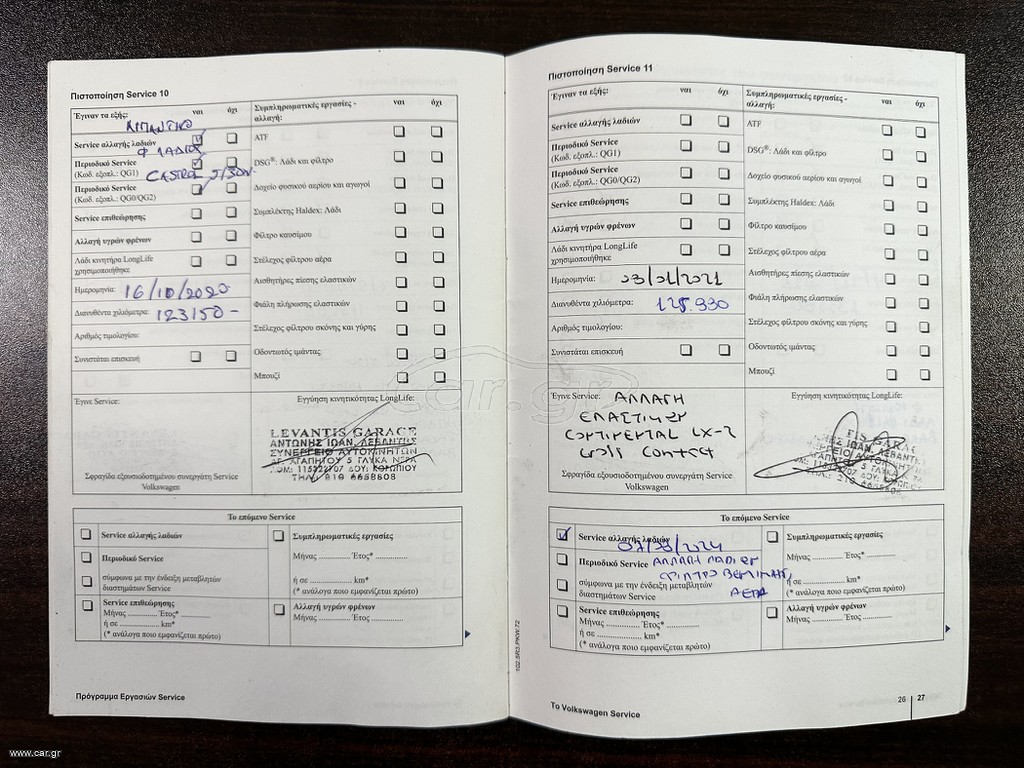 Πιστοποίηση Service 10
Έγιναν τα εξής: ναι όχι
ΛΙΠΑΝΤΙΚΟ
Service αλλαγής λαδιών
Φ ΛΑΔΙΟΥ
Περιοδικό Service
(Κωδ. εξοπλ.: QG1) CASTROL 5/30W
Περιοδικό Service
(Κωδ. εξοπλ.: QG0/QG2)
Service επιθεώρησης
Αλλαγή υγρών φρένων
Λάδι κινητήρα LongLife
χρησιμοποιήθηκε
Ημερομηνία: 16/10/2020
Διανυθέντα χιλιόμετρα: 123150-
Αριθμός τιμολογίου:
Συνιστάται επισκευή
Συμπληρωματικές εργασίες - ναι όχι
αλλαγή:
ATF
DSG®: Λάδι και φίλτρο
Δοχείο φυσικού αερίου και αγωγοί
Συμπλέκτης Haldex: Λάδι
Φίλτρο καυσίμου
Στέλεχος φίλτρου αέρα
Αισθητήρες πίεσης ελαστικών
Φιάλη πλήρωσης ελαστικών
Στέλεχος φίλτρου σκόνης και γύρης
Οδοντωτός ιμάντας
Μπουζί
Έγινε Service:
Εγγύηση κινητικότητας LongLife:
LEVANTIS GARAGE
ΑΝΤΩΝΗΣ ΙΩΑΝ. ΛΕΒΑΝΤΗΣ
ΣΥΝΕΡΓΕΙΟ ΑΥΤΟΚΙΝΗΤΩΝ
ΑΓ. ΑΓΑΠΗΤΟΥ 5 ΓΛΥΚΑ ΝΕΡΑ
ΑΦΜ: 115322707 ΔΟΥ: ΚΟΡΩΠΙΟΥ
ΤΗΛ: 210 6658608
Σφραγίδα εξουσιοδοτημένου συνεργάτη Service
Volkswagen
Το επόμενο Service
Service αλλαγής λαδιών
Περιοδικό Service
σύμφωνα με την ένδειξη μεταβλητών
διαστημάτων Service
Service επιθεώρησης
Μήνας ........... Έτος* ...........
ή σε ............... km*
(* ανάλογα ποιο εμφανίζεται πρώτο)
Συμπληρωματικές εργασίες
Μήνας ........... Έτος* ...........
ή σε ............... km*
(* ανάλογα ποιο εμφανίζεται πρώτο)
Αλλαγή υγρών φρένων
Μήνας ........... Έτος ...........
Πρόγραμμα Εργασιών Service
102.5R3.PKW.72
Πιστοποίηση Service 11
Έγιναν τα εξής: ναι όχι
Service αλλαγής λαδιών
Περιοδικό Service
(Κωδ. εξοπλ.: QG1)
Περιοδικό Service
(Κωδ. εξοπλ.: QG0/QG2)
Service επιθεώρησης
Αλλαγή υγρών φρένων
Λάδι κινητήρα LongLife
χρησιμοποιήθηκε
Ημερομηνία: 23/01/2021
Διανυθέντα χιλιόμετρα: 125.930
Αριθμός τιμολογίου:
Συνιστάται επισκευή
Συμπληρωματικές εργασίες - ναι όχι
αλλαγή:
ATF
DSG®: Λάδι και φίλτρο
Δοχείο φυσικού αερίου και αγωγοί
Συμπλέκτης Haldex: Λάδι
Φίλτρο καυσίμου
Στέλεχος φίλτρου αέρα
Αισθητήρες πίεσης ελαστικών
Φιάλη πλήρωσης ελαστικών
Στέλεχος φίλτρου σκόνης και γύρης
Οδοντωτός ιμάντας
Μπουζί
Έγινε Service: ΑΛΛΑΓΗ
ΕΛΑΣΤΙΚΩΝ
CONTINENTAL LX-2
Cross Contact
Εγγύηση κινητικότητας LongLife:
Σφραγίδα εξουσιοδοτημένου συνεργάτη Service
Volkswagen
Το επόμενο Service
Service αλλαγής λαδιών
Περιοδικό Service ΑΛΛΑΓΗ ΛΑΔΙΩΝ
ΦΙΛΤΡΟ ΒΕΝΖΙΝΗΣ,
ΑΕΡΑ
σύμφωνα με την ένδειξη μεταβλητών
διαστημάτων Service
Service επιθεώρησης
Μήνας ........... Έτος* ...........
ή σε ............... km*
(* ανάλογα ποιο εμφανίζεται πρώτο)
Συμπληρωματικές εργασίες
Μήνας ........... Έτος* ...........
ή σε ............... km*
(* ανάλογα ποιο εμφανίζεται πρώτο)
Αλλαγή υγρών φρένων
Μήνας ........... Έτος ...........
Το Volkswagen Service
26 | 27
car.gr
www.car.gr